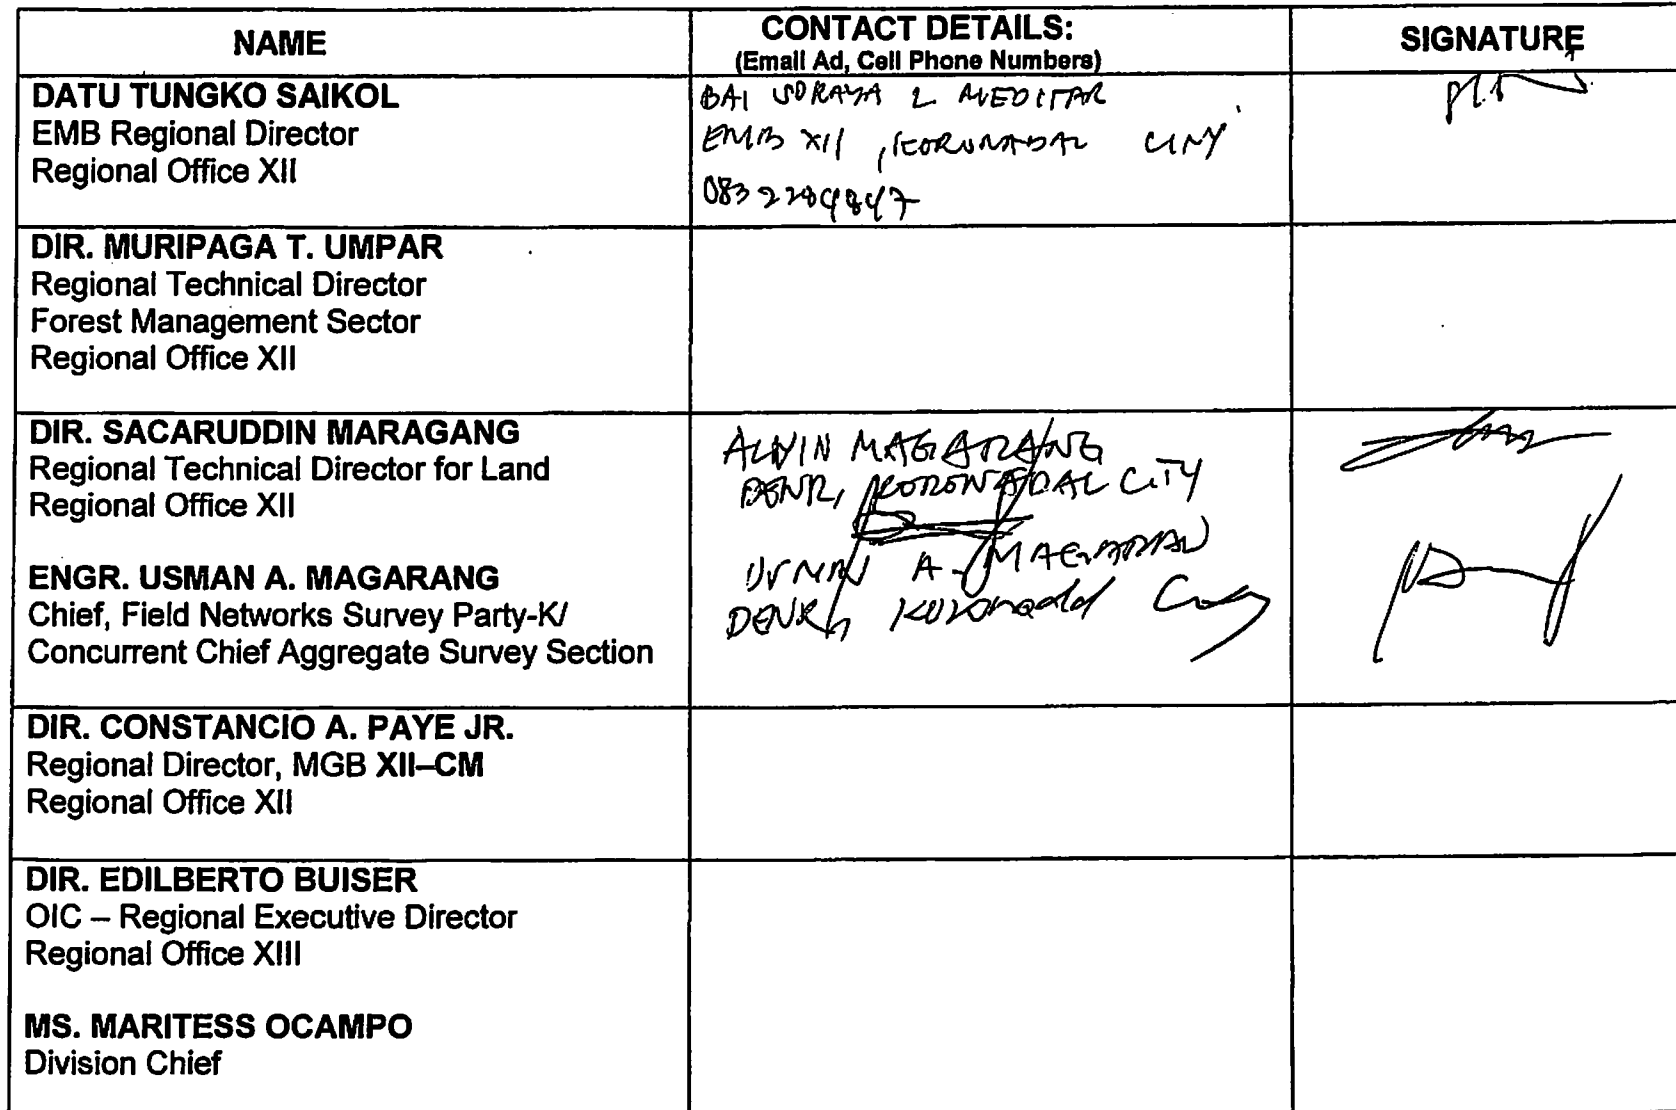 NAME
CONTACT DETAILS:
(Email Ad, Cell Phone Numbers)
SIGNATURE
DATU TUNGKO SAIKOL
EMB Regional Director
Regional Office XII
BAI SORAYA
EMB XII, KORONADAL CITY
083
DIR. MURIPAGA T. UMPAR
Regional Technical Director
Forest Management Sector
Regional Office XII
DIR. SACARUDDIN MARAGANG
Regional Technical Director for Land
Regional Office XII
ALVIN MAGARANG
DENR, KORONADAL CITY
ENGR. USMAN A. MAGARANG
Chief, Field Networks Survey Party-K/
Concurrent Chief Aggregate Survey Section
A.
DENR, Koronadal City
DIR. CONSTANCIO A. PAYE JR.
Regional Director, MGB XII–CM
Regional Office XII
DIR. EDILBERTO BUISER
OIC – Regional Executive Director
Regional Office XIII
MS. MARITESS OCAMPO
Division Chief